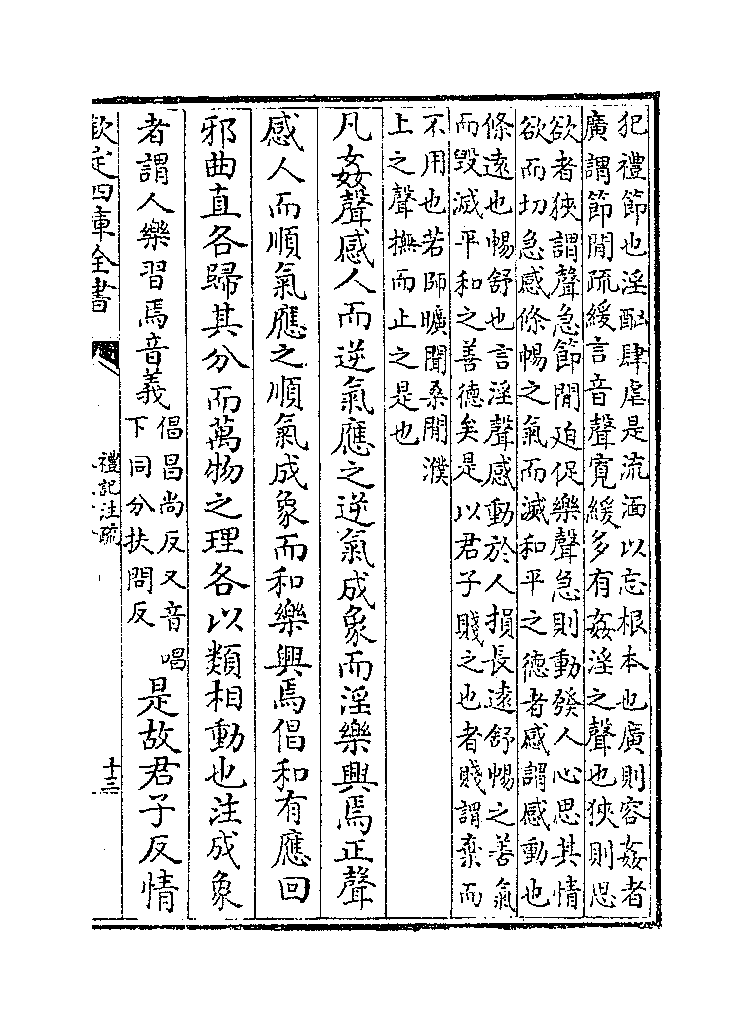 犯禮節也淫酗肆虐是流湎以忘根本也廣則容姦者
廣謂節閒疏緩言音聲寛緩多有姦淫之聲也狹則思
欲者狹謂聲急節閒廹促樂聲急則動發人心思其情
欲而切急感條暢之氣而滅和平之徳者感謂感動也
條遠也暢舒也言淫聲感動於人損長遠舒暢之善氣
而毁滅平和之善徳矣是以君子賤之也者賤謂棄而
不用也若師曠聞桑閒濮
上之聲撫而止之是也
凡姦聲感人而逆氣應之逆氣成象而淫樂興焉正聲
感人而順氣應之順氣成象而和樂興焉倡和有應回
邪曲直各歸其分而萬物之理各以類相動也注成象
者謂人樂習焉音義倡昌尚反又音唱下同分扶問反是故君子反情
欽定四庫全書
禮記注疏
十三